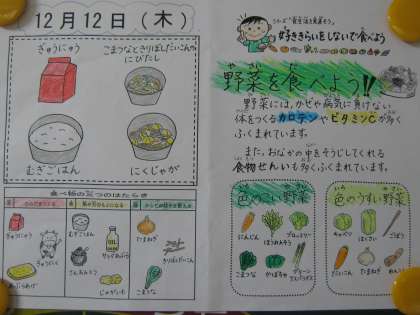 12月12日(木)
ぎゅうにゅう
こまつなときりぼしだいこんの
にびたし
むぎごはん
にくじゃが
食べ物の三つのはたらき
ぎゅうにゅう
ぎゅうにく
あぶらあげ
むぎごはん
さとう
じゃがいも
たまねぎ
きりぼしだいこん
こまつな
好ききらいをしないで食べよう
野菜を食べよう!!
野菜には、かぜや病気に負けない
体をつくるカロテンやビタミンCが多く
ふくまれています。
また、おなかの中をそうじしてくれる
食物せんいも多くふくまれています。
色のこい野菜
にんじん
ほうれんそう
ブロッコリー
こまつな
かぼちゃ
グリーン
アスパラガス
色のうすい野菜
キャベツ
はくさい
ごぼう
だいこん
たまねぎ